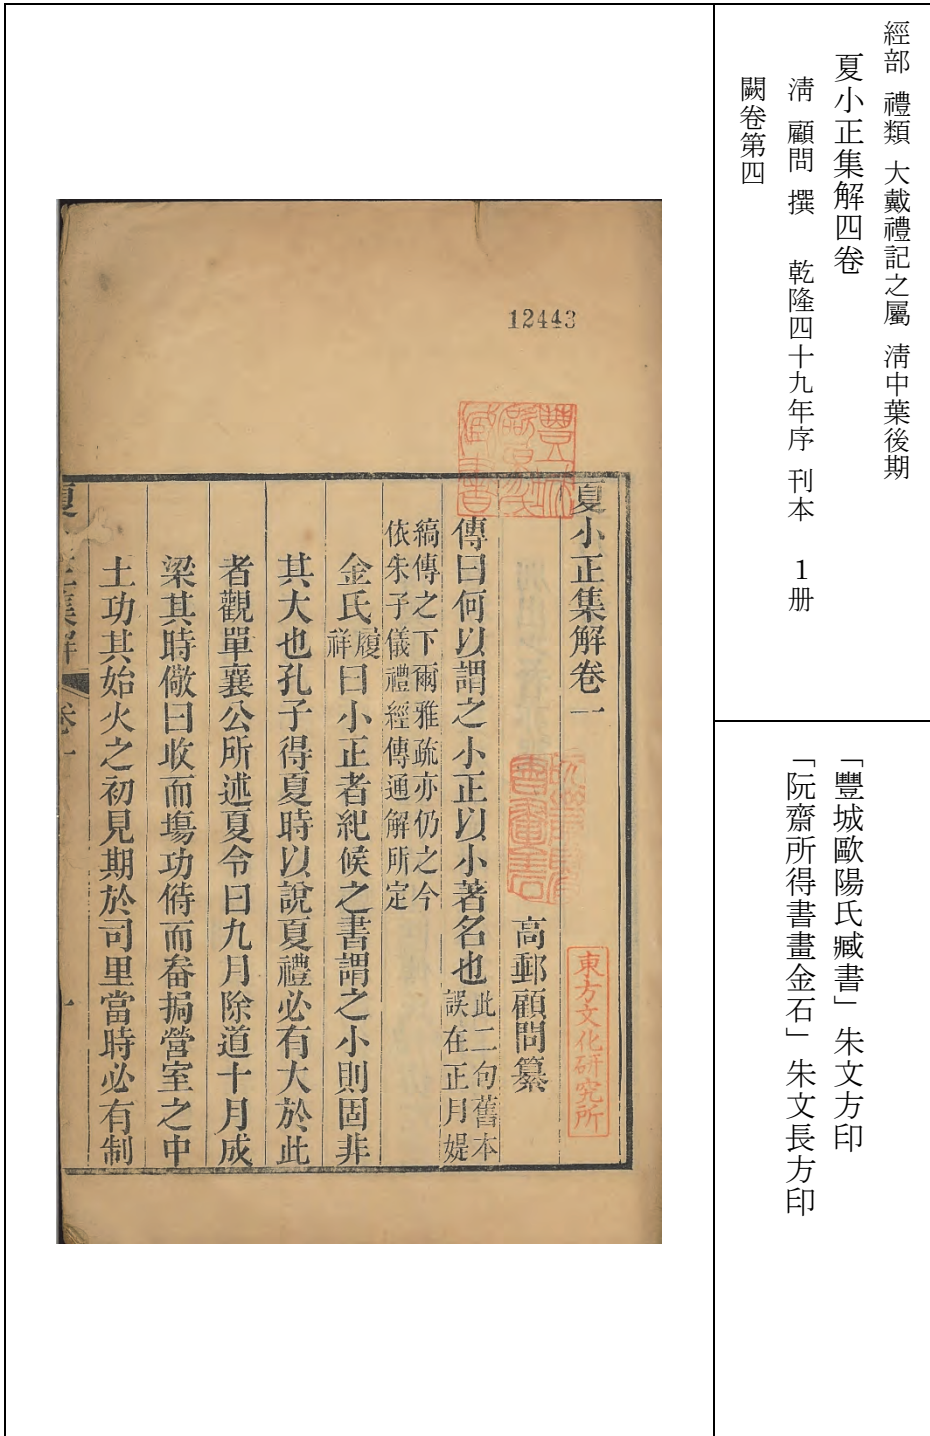 經部 禮類 大戴禮記之屬 淸中葉後期
夏小正集解四卷
淸 顧問 撰 乾隆四十九年序 刊本 1册
闕卷第四
「豐城歐陽氏臧書」朱文方印
「阮齋所得書畫金石」朱文長方印
12443
夏小正集解卷一
高郵顧問纂
東方文化研究所
傳曰何以謂之小正以小著名也此二句舊本
誤在正月媞
縞傳之下爾雅疏亦仍之今
依朱子儀禮經傳通解所定
金氏履
祥曰小正者紀候之書謂之小則固非
其大也孔子得夏時以說夏禮必有大於此
者觀單襄公所述夏令曰九月除道十月成
梁其時儆曰收而塲功偫而畚挶營室之中
土功其始火之初見期於司里當時必有制